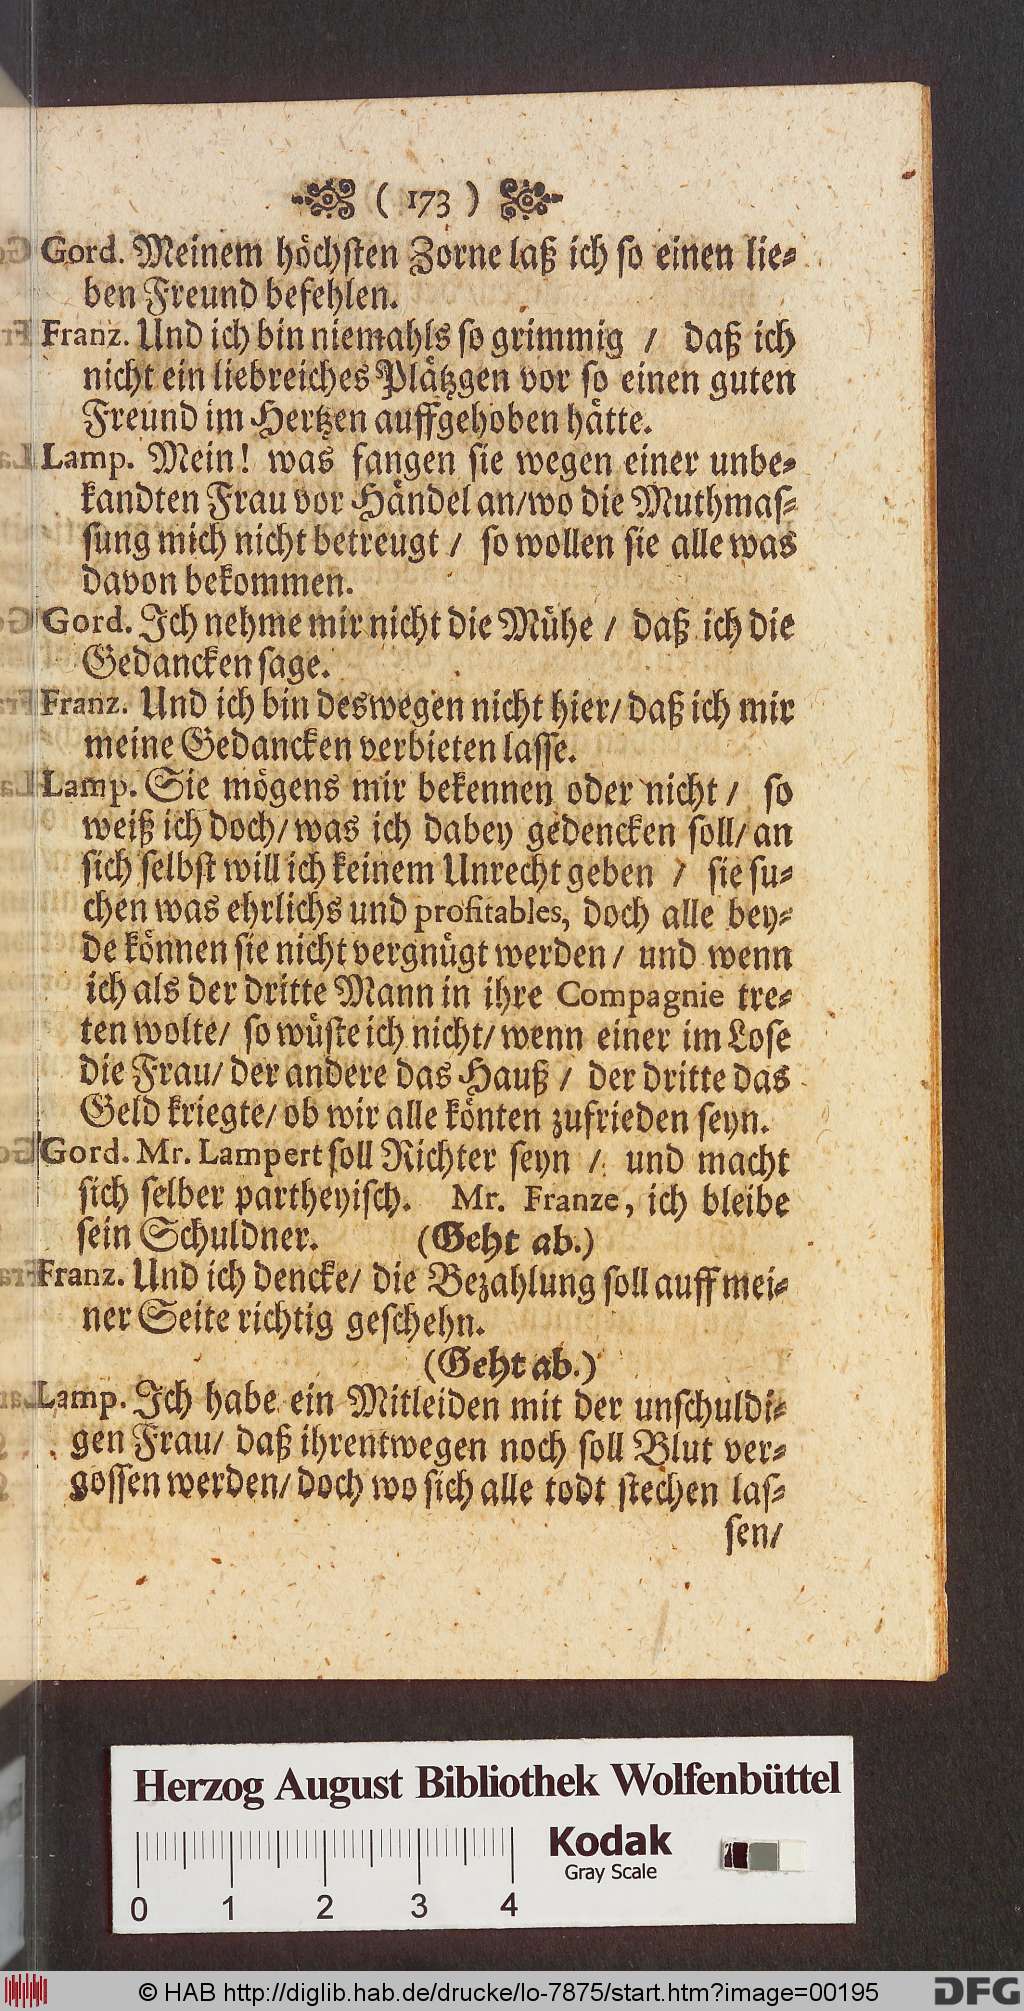 ( 173 )
Gord. Meinem höchsten Zorne laß ich so einen lie-
ben Freund befehlen.
Franz. Und ich bin niemahls so grimmig / daß ich
nicht ein liebreiches Plätzgen vor so einen guten
Freund im Hertzen auffgehoben hätte.
Lamp. Mein! was fangen sie wegen einer unbe-
kandten Frau vor Händel an/ wo die Muthmas-
sung mich nicht betreugt / so wollen sie alle was
davon bekommen.
Gord. Ich nehme mir nicht die Mühe / daß ich die
Gedancken sage.
Franz. Und ich bin deswegen nicht hier/ daß ich mir
meine Gedancken verbieten lasse.
Lamp. Sie mögens mir bekennen oder nicht / so
weiß ich doch/ was ich dabey gedencken soll/ an
sich selbst will ich keinem Unrecht geben / sie su-
chen was ehrlichs und profitables, doch alle bey-
de können sie nicht vergnügt werden/ und wenn
ich als der dritte Mann in ihre Compagnie tre-
ten wolte/ so wüste ich nicht/ wenn einer im Lose
die Frau/ der andere das Hauß / der dritte das
Geld kriegte/ ob wir alle könten zufrieden seyn.
Gord. Mr. Lampert soll Richter seyn / und macht
sich selber partheyisch. Mr. Franze, ich bleibe
sein Schuldner. (Geht ab.)
Franz. Und ich dencke/ die Bezahlung soll auff mei-
ner Seite richtig geschehn.
(Geht ab.)
Lamp. Ich habe ein Mitleiden mit der unschuldi-
gen Frau/ daß ihrentwegen noch soll Blut ver-
gossen werden/ doch wo sich alle todt stechen las-
sen/
Herzog August Bibliothek Wolfenbüttel
Kodak
Gray Scale
0 1 2 3 4
© HAB http://diglib.hab.de/drucke/lo-7875/start.htm?image=00195
DFG